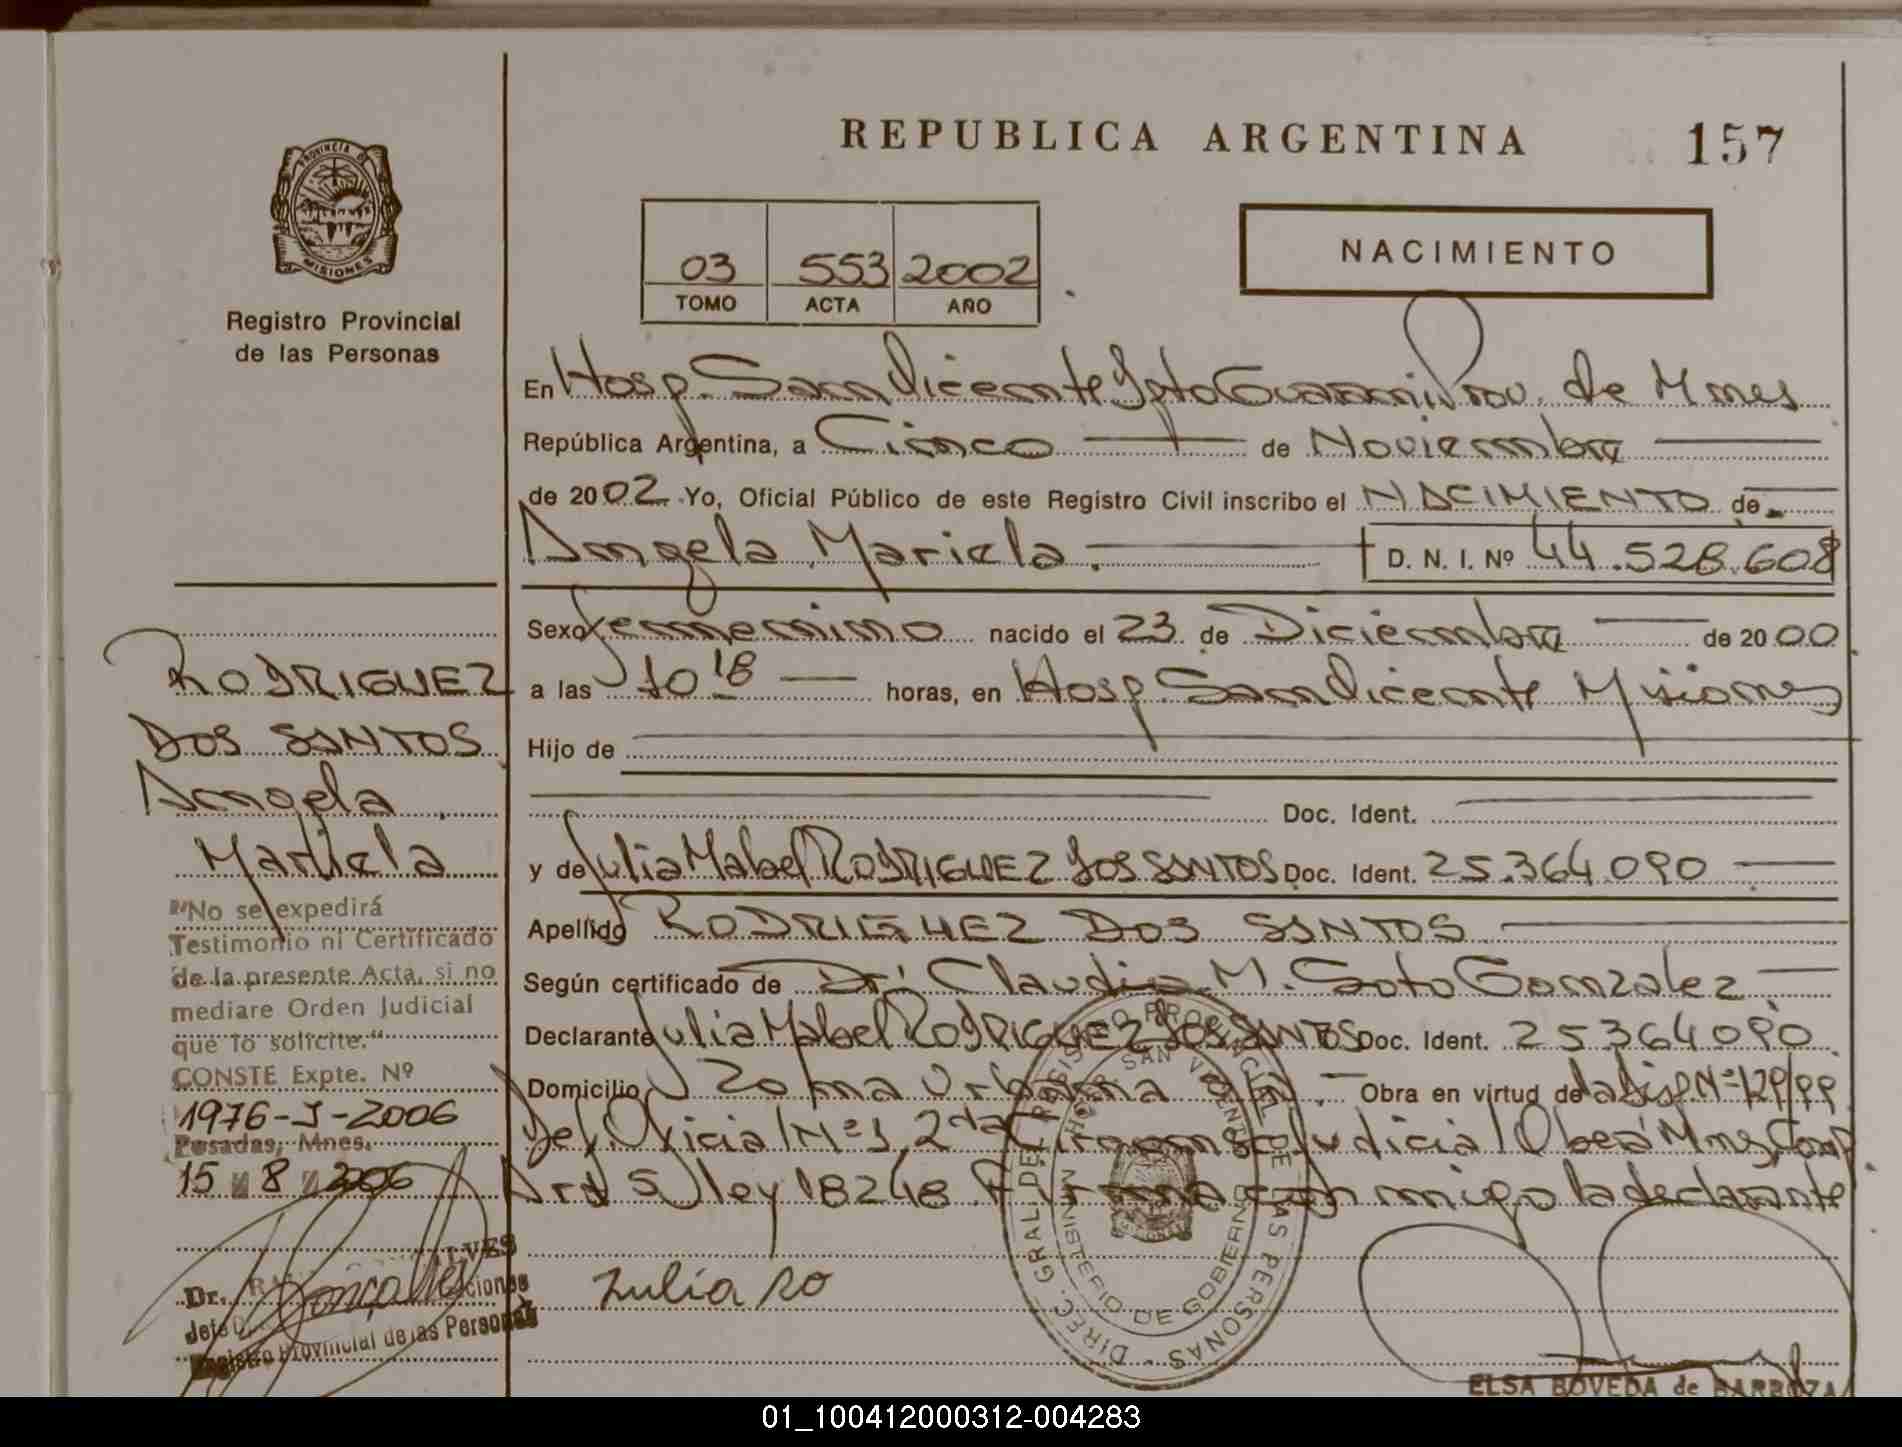 REPUBLICA ARGENTINA
157
PROVINCIA DE
MISIONES
Registro Provincial
de las Personas
03 553 2002
TOMO ACTA AÑO
NACIMIENTO
En Hosp. San Vicente Dpto Guarani Prov. de Mnes
República Argentina, a Cinco de Noviembre
de 2002 Yo, Oficial Público de este Registro Civil inscribo el NACIMIENTO de
Angela Mariela. D. N. I. Nº 44.528.608
Sexo femenino nacido el 23 de Diciembre de 2000
a las 10 18 horas, en Hosp. San Vicente Misiones
Hijo de
Doc. Ident.
y de Julia Mabel RODRIGUEZ DOS SANTOS Doc. Ident. 25.364.090
Apellido RODRIGUEZ DOS SANTOS
Según certificado de Dr. Claudia M. Soto Gonzalez
Declarante Julia Mabel RODRIGUEZ DOS SANTOS Doc. Ident. 25364090
Domicilio Zona Urbana Obra en virtud de la Disp. Nº 129/99
Del. Oficial Nº 1 2da Judicial Oberá Mnes
Art 5 ley 18248 Firma con migo la declarante
Julia Ro
RODRIGUEZ
DOS SANTOS
Angela
Mariela
"No se expedirá
Testimonio ni Certificado
de la presente Acta, si no
mediare Orden Judicial
que lo solicite."
CONSTE Expte. Nº
1976-J-2006
Posadas, Mnes.
15 8 2006
Dr.
Jefe
Registro Provincial de las Personas
DIREC. GRAL. DEL REGISTRO PROVINCIAL DE LAS PERSONAS
MINISTERIO DE GOBIERNO
SAN VICENTE
ELSA BOVEDA de BARBOZA
01_100412000312-004283